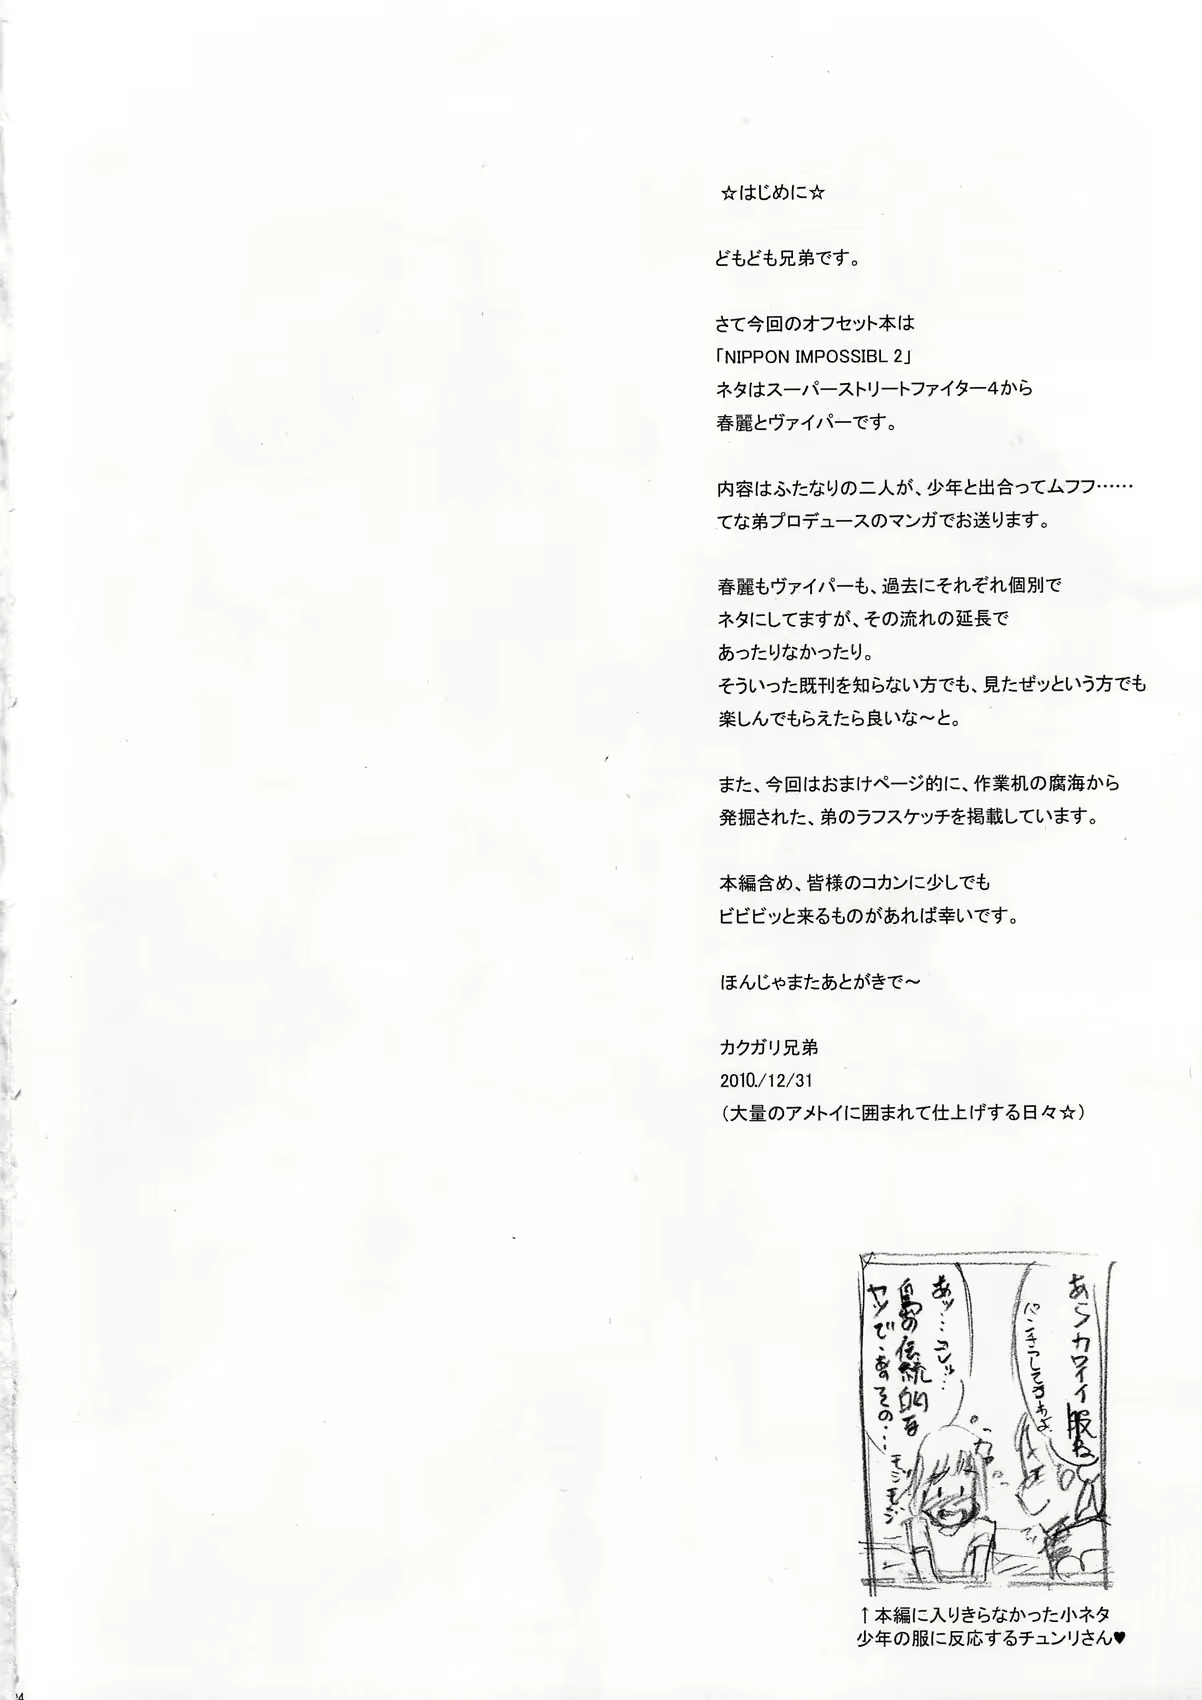 ☆はじめに☆
どもども兄弟です。
さて今回のオフセット本は
「NIPPON IMPOSSIBL 2」
ネタはスーパーストリートファイター4から
春麗とヴァイパーです。
内容はふたなりの二人が、少年と出合ってムフフ……
てな弟プロデュースのマンガでお送ります。
春麗もヴァイパーも、過去にそれぞれ個別で
ネタにしてますが、その流れの延長で
あったりなかったり。
そういった既刊を知らない方でも、見たぜッという方でも
楽しんでもらえたら良いな～と。
また、今回はおまけページ的に、作業机の腐海から
発掘された、弟のラフスケッチを掲載しています。
本編含め、皆様のコカンに少しでも
ビビビッと来るものがあれば幸いです。
ほんじゃまたあとがきで～
カクガリ兄弟
2010./12/31
（大量のアメトイに囲まれて仕上げする日々☆）
あらカワイイ服ね
あッ…コレッ…
島の伝統的な
ヤツで・あのその…
モジモジ
↑本編に入りきらなかった小ネタ
少年の服に反応するチュンリさん♥